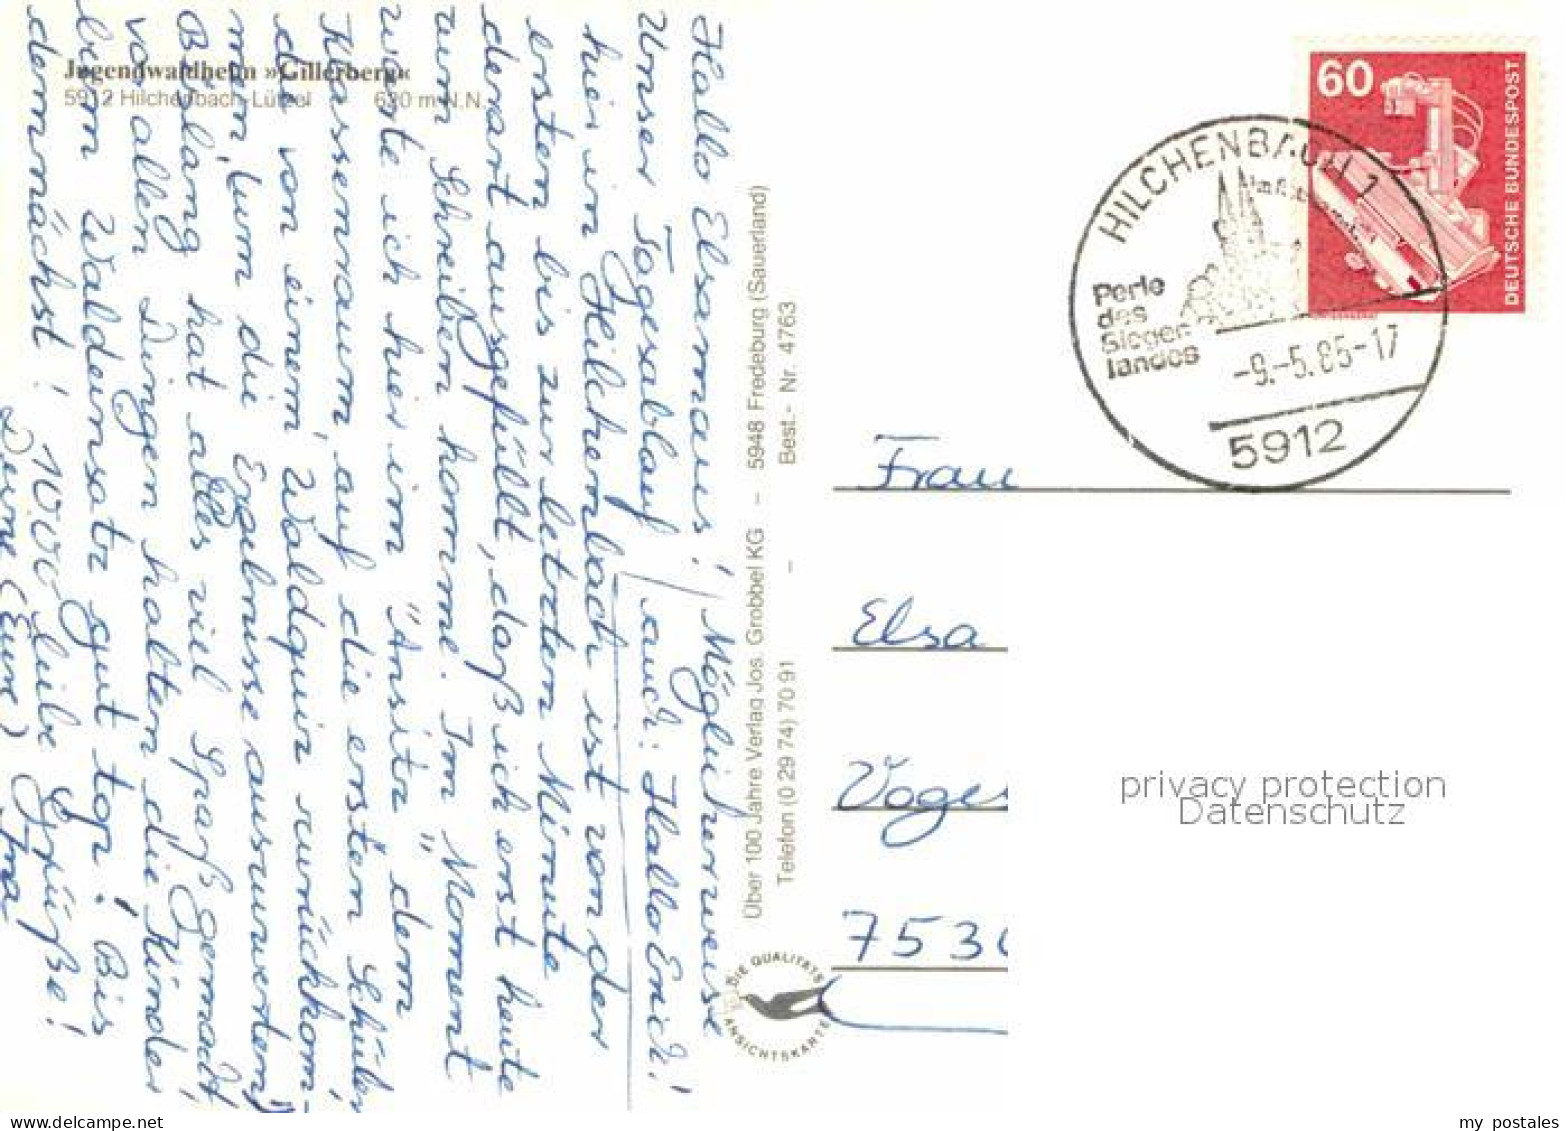 Jugendwaldheim »Gillerberg«
5912 Hilchenbach-Lützel 630 m N.N.
Hallo Elsamaus! Möglicherweise
auch: Hallo Erich!
Unser Tagesablauf
hier in Hilchenbach ist von der
ersten bis zur letzten Minute
derart ausgefüllt, daß ich erst heute
zum Schreiben komme. Im Moment
warte ich hier im "Ansitz" dem
Klassenraum, auf die ersten Schüler
die von einem Waldquiz zurückkom-
men (um die Ergebnisse auszuwerten)
Bislang hat alles viel Spaß gemacht
vor allen Dingen halten die Kinder
beim Waldeinsatz gut top! Bis
demnächst! 1000 liebe Grüße!
Deine (Eure)
Über 100 Jahre Verlag Jos. Grobbel KG – 5948 Fredeburg (Sauerland)
Telefon (0 29 74) 70 91 – Best.- Nr. 4763
DIE QUALITÄTS
ANSICHTSKARTE
60
DEUTSCHE BUNDESPOST
HILCHENBACH 1
Perle
des
Siegen
landes
-9.-5.85-17
5912
Frau
Elsa
Voges
753
privacy protection
Datenschutz
my postales